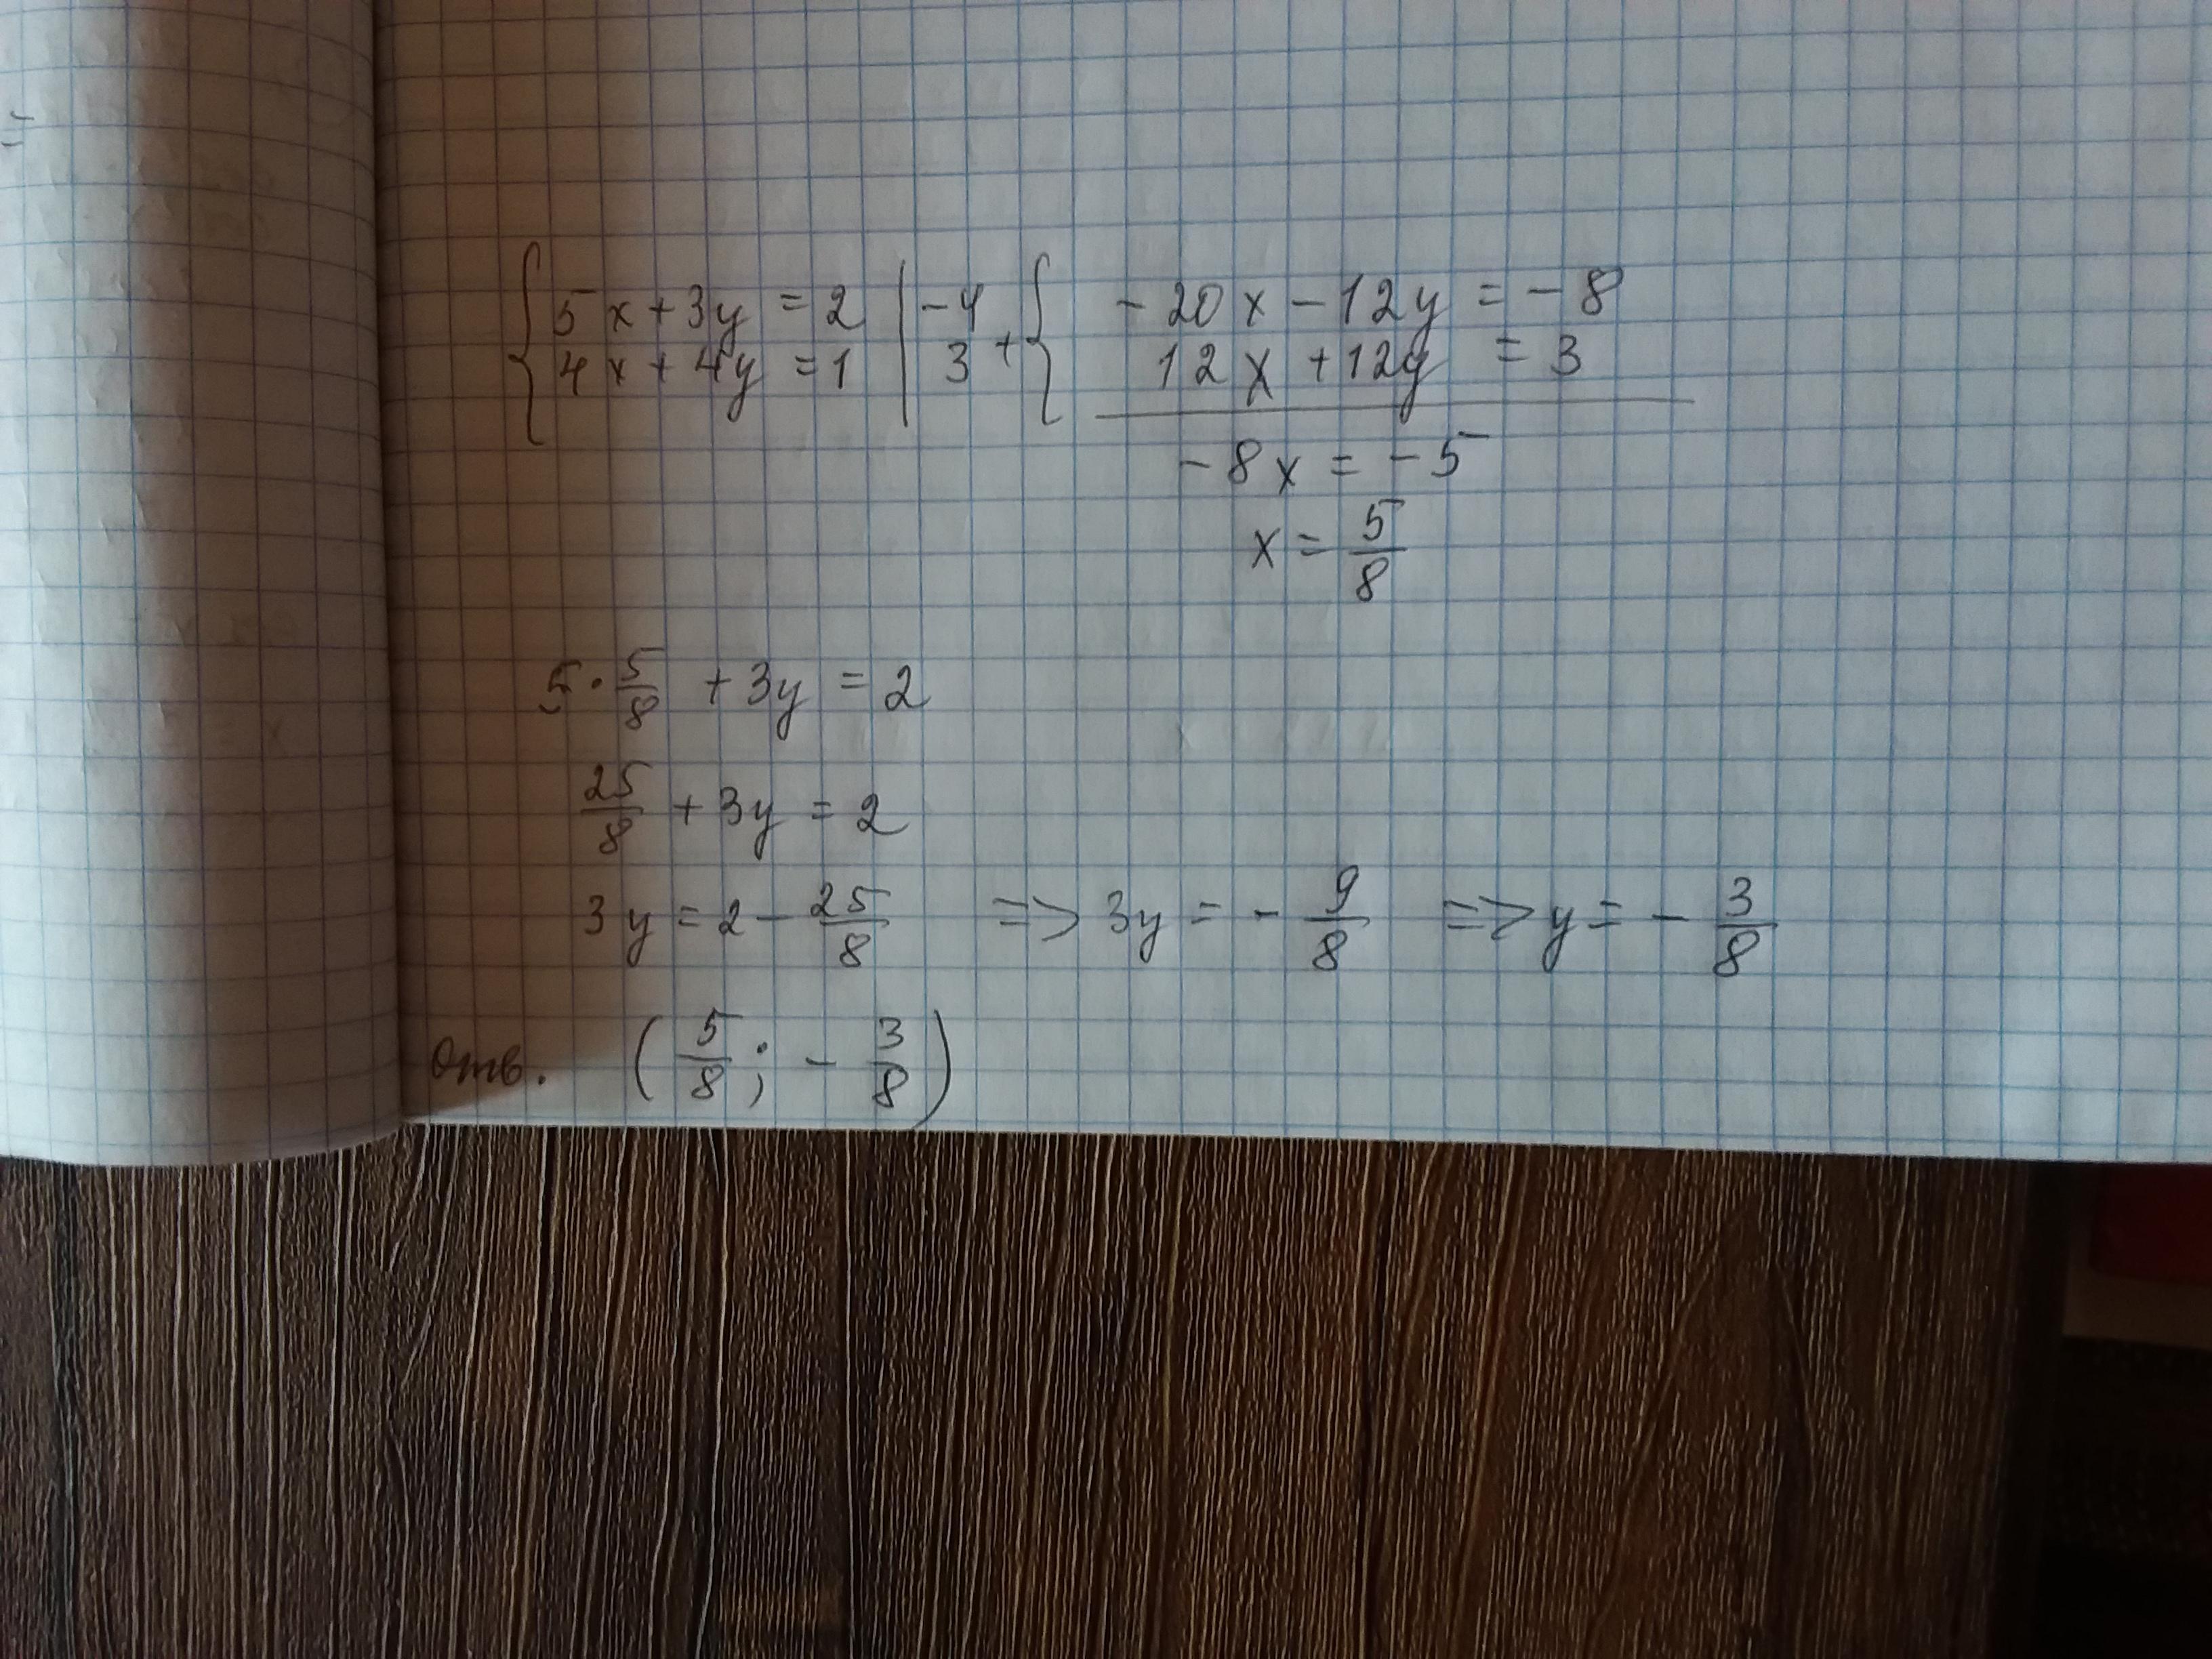 { 5x + 3y = 2 | -4 + { -20x - 12y = -8
4x + 4y = 1 | 3 12x + 12y = 3
-8x = -5
x = 5/8
5 · 5/8 + 3y = 2
25/8 + 3y = 2
3y = 2 - 25/8 => 3y = - 9/8 => y = - 3/8
Отв. (5/8; - 3/8)